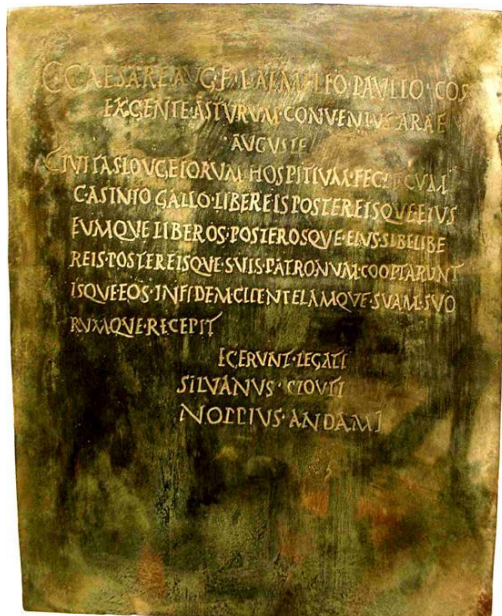 C·CAESARE·AVG·F·L·AEMILIO·PAVLLO·COS
EX·GENTE·ASTVRVM·CONVENTVS·ARAE
AVGVSTE
CIVITAS·LOVGEIORVM·HOSPITIVM·FECIT·CVM
C·ASINIO·GALLO·LIBEREIS·POSTEREISQVE·EIVS
EVMQVE·LIBEROS·POSTEROSQVE·EIVS·SIBE·LIBE
REIS·POSTEREISQVE·SVIS·PATRONVM·COOPTARVNT
ISQVE·EOS·IN·FIDEM·CLIENTELAMQVE·SVAM·SVO
RVMQVE·RECEPIT
EGERVNT·LEGATI
SILVANVS·CLOVTI
NOPPIVS·ANDAMI